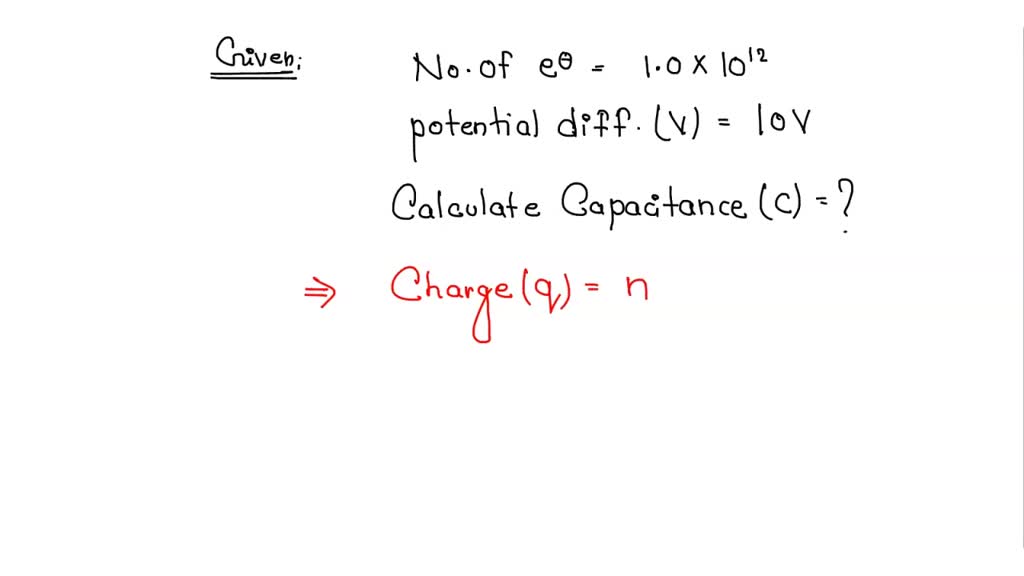 Given:
No. of e⊖ = 1.0 × 10¹²
potential diff. (V) = 10V
Calculate Capacitance (C) = ?
⇒ Charge (q) = n